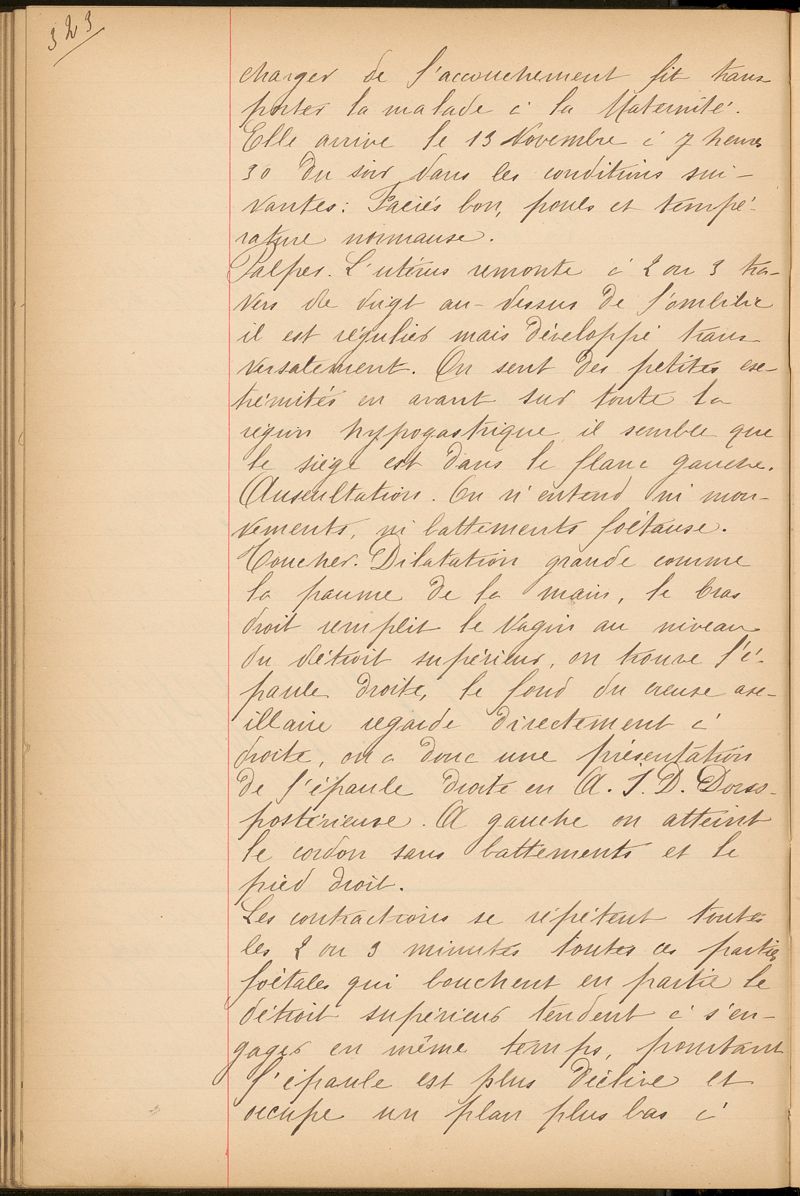 323
charger de l'accouchement fit trans-
porter la malade à la Maternité.
Elle arrive le 13 Novembre à 7 heures
30 du soir dans les conditions sui-
vantes: Faciès bon, pouls et tempé-
rature normause.
Palper. L'utérus remonte à 2 ou 3 tra-
vers de doigt au-dessus de l'ombilic
il est régulier mais développé trans-
versalement. On sent des petites exe-
trémités en avant sur toute la
région hypogastrique il semble que
le siège est dans le flanc gauche.
Auscultation. On n'entend ni mou-
vements, ni battements foetause.
Toucher. Dilatation grande comme
la paume de la main, le bras
droit remplit le vagin au niveau
du détroit supérieur, on trouve l'é-
paule droite, le fond du creuse axe-
illaire regarde directement à
droite, on a donc une présentation
de l'épaule droite en A. I. D. Dorso-
postérieure. A gauche on atteint
le cordon sans battements et le
pied droit.
Les contractions se répètent toutes
les 2 ou 3 minutes toutes ces parties
foetales qui bouchent en partie le
détroit supérieur tendent à s'en-
gager en même temps, pourtant
l'épaule est plus déclive et
occupe un plan plus bas à